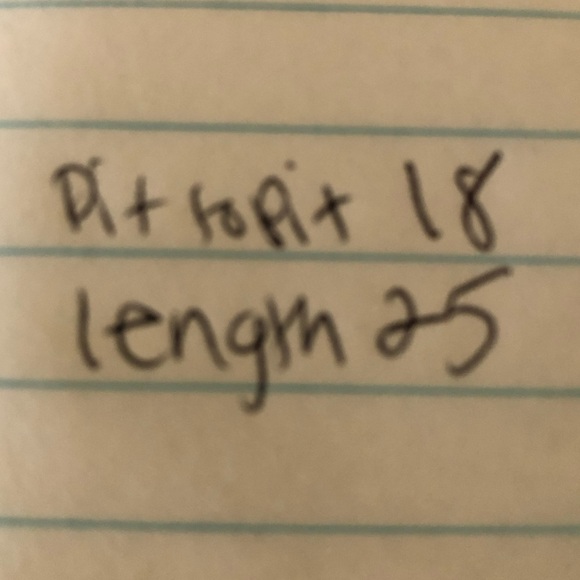 Pit to pit 18
length 25